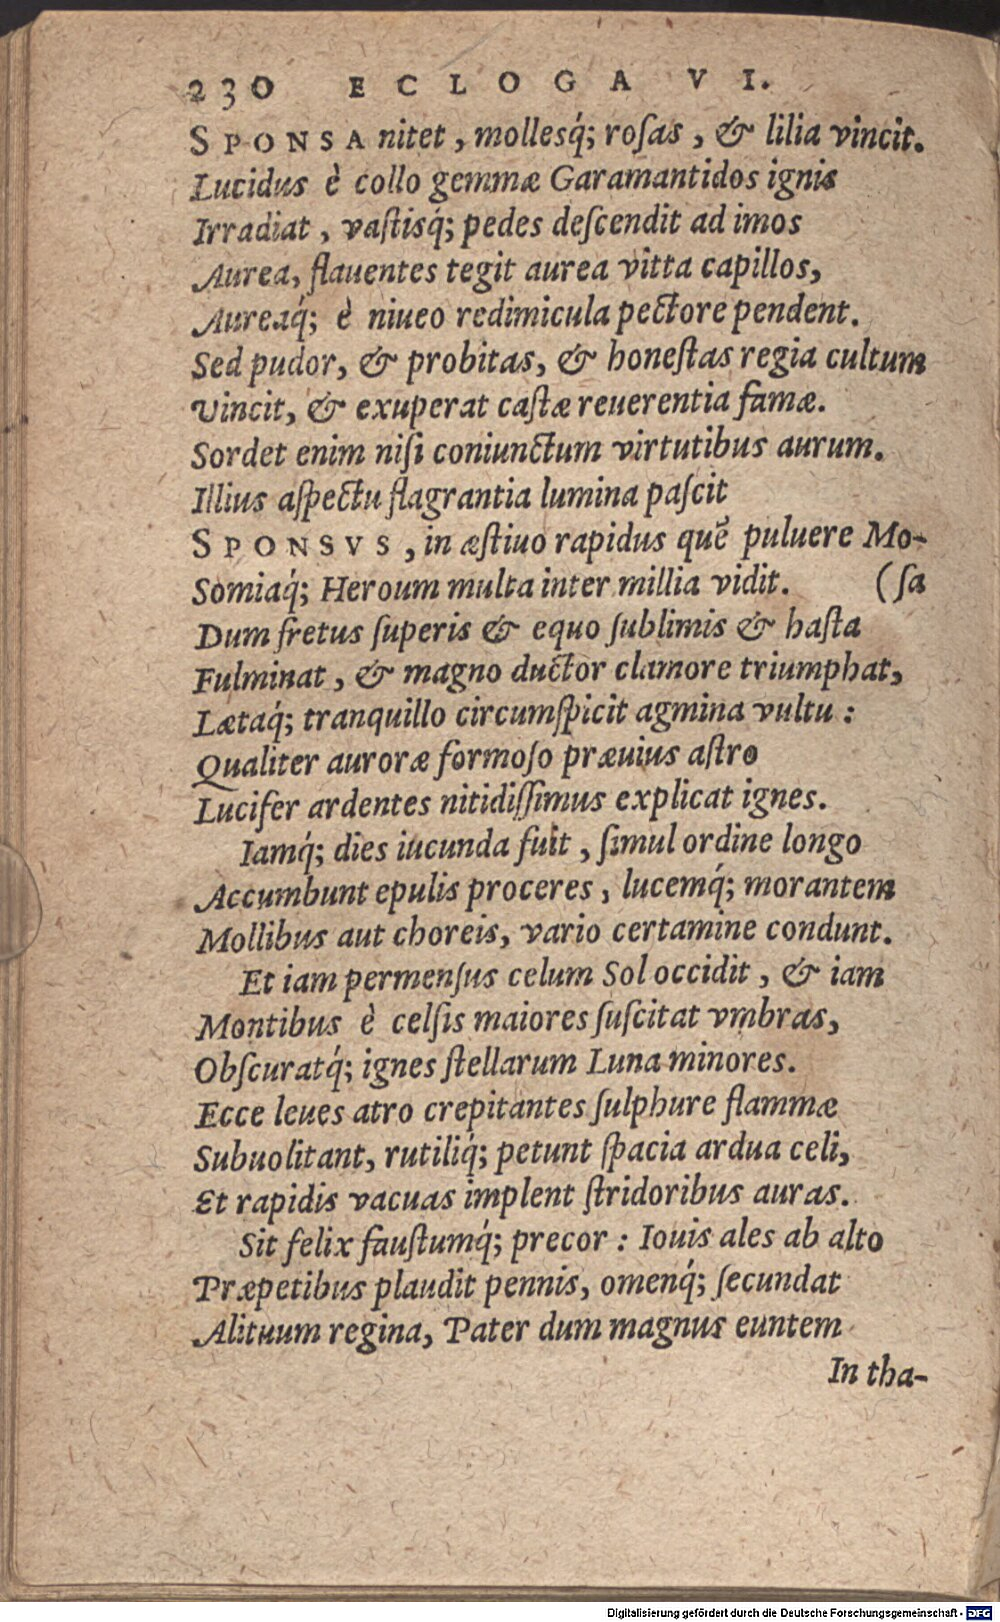 230 ECLOGA VI.
SPONSA nitet, mollesq́; roſas, & lilia vincit.
Lucidus è collo gemmæ Garamantidos ignis
Irradiat, vaſtisq́; pedes deſcendit ad imos
Aurea, flauentes tegit aurea vitta capillos,
Aureaq́; è niueo redimicula pectore pendent.
Sed pudor, & probitas, & honeſtas regia cultum
Vincit, & exuperat caſtæ reuerentia famæ.
Sordet enim niſi coniunctum virtutibus aurum.
Illius aſpectu flagrantia lumina paſcit
SPONSVS, in æſtiuo rapidus quẽ puluere Mo-
Somiaq́; Heroum multa inter millia vidit. (ſa
Dum fretus ſuperis & equo ſublimis & haſta
Fulminat, & magno ductor clamore triumphat,
Lætaq́; tranquillo circumſpicit agmina vultu:
Qualiter auroræ formoſo præuius aſtro
Lucifer ardentes nitidiſſimus explicat ignes.
Iamq́; dies iucunda fuit, ſimul ordine longo
Accumbunt epulis proceres, lucemq́; morantem
Mollibus aut choreis, vario certamine condunt.
Et iam permenſus celum Sol occidit, & iam
Montibus è celſis maiores ſuſcitat vmbras,
Obſcuratq́; ignes ſtellarum Luna minores.
Ecce leues atro crepitantes ſulphure flammæ
Subuolitant, rutiliq́; petunt ſpacia ardua celi,
Et rapidis vacuas implent ſtridoribus auras.
Sit felix fauſtumq́; precor: Iouis ales ab alto
Præpetibus plaudit pennis, omenq́; ſecundat
Alituum regina, Pater dum magnus euntem
In tha-
Digitalisierung gefördert durch die Deutsche Forschungsgemeinschaft - DFG